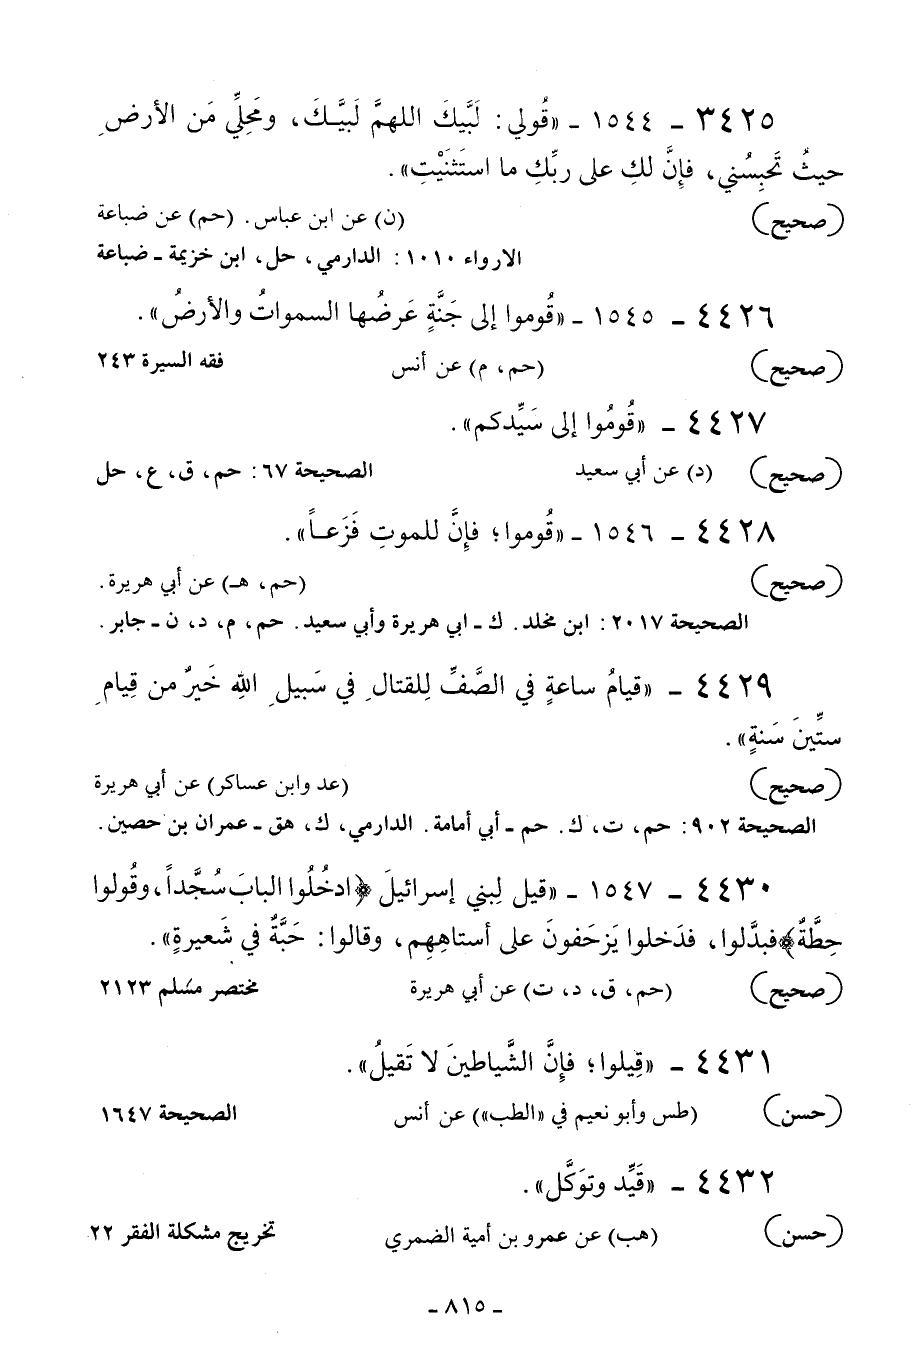 ٣٤٢٥ ـ ١٥٤٤ ـ «قُولي: لَبَّيكَ اللهمَّ لَبيَّـكَ، ومَحِلِّي مَن الأرضِ
حيثُ تَحبِسُني، فإنَّ لكِ على ربِّكِ ما استَثنَيْتِ».
(صحيح) (ن) عن ابن عباس. (حم) عن ضباعة
الارواء ١٠١٠: الدارمي، حل، ابن خزيمة ـ ضباعة
٤٤٢٦ ـ ١٥٤٥ ـ «قُوموا إلى جَنَّةٍ عَرضُها السمواتُ والأرضُ».
(صحيح) (حم، م) عن أنس فقه السيرة ٢٤٣
٤٤٢٧ ـ «قُومُوا إلى سَيِّدكم».
(صحيح) (د) عن أبي سعيد الصحيحة ٦٧: حم، ق، ع، حل
٤٤٢٨ ـ ١٥٤٦ ـ «قُوموا؛ فإنَّ للموتِ فَزَعـاً».
(صحيح) (حم، هـ) عن أبي هريرة.
الصحيحة ٢٠١٧: ابن مخلد. ك ـ ابي هريرة وأبي سعيد. حم، م، د، ن ـ جابر.
٤٤٢٩ ـ «قيامُ ساعةٍ في الصَّفِّ لِلقتالِ في سَبيلِ اللهِ خَيرٌ من قِيامِ
ستِّينَ سَنةٍ».
(صحيح) (عد وابن عساكر) عن أبي هريرة
الصحيحة ٩٠٢: حم، ت، ك. حم ـ أبي أمامة. الدارمي، ك، هق ـ عمران بن حصين.
٤٤٣٠ ـ ١٥٤٧ ـ «قيل لِبني إسرائيلَ ﴿ادخُلُوا البابَ سُجَّداً، وقُولوا
حِطَّةٌ﴾ فبدَّلوا، فدَخلوا يَزحَفونَ على أستاهِهِم، وقالوا: حَبَّةٌ في شَعيرةٍ».
(صحيح) (حم، ق، د، ت) عن أبي هريرة مختصر مسلم ٢١٢٣
٤٤٣١ ـ «قِيلوا؛ فإنَّ الشَّياطينَ لا تَقيلُ».
(حسن) (طس وأبو نعيم في «الطب») عن أنس الصحيحة ١٦٤٧
٤٤٣٢ ـ «قَيِّد وتوَكَّل».
(حسن) (هب) عن عمرو بن أمية الضمري تخريج مشكلة الفقر ٢٢
ـ ٨١٥ ـ